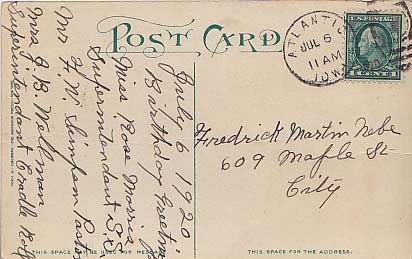 POST CARD
ATLANTIC
JUL 6
11 AM
IOWA
U.S. POSTAGE
July 6 1920
Birthday Greeting
Miss Rose Morris
Superintendent S.S.
H.W. Simpson Pastor
Mr
Mrs J B Wellman
Superintendent Cradle Roll
Fredrick Martin Nebe
609 Maple St
City
THIS SPACE MAY BE USED FOR MESSAGE
THIS SPACE IS FOR THE ADDRESS.